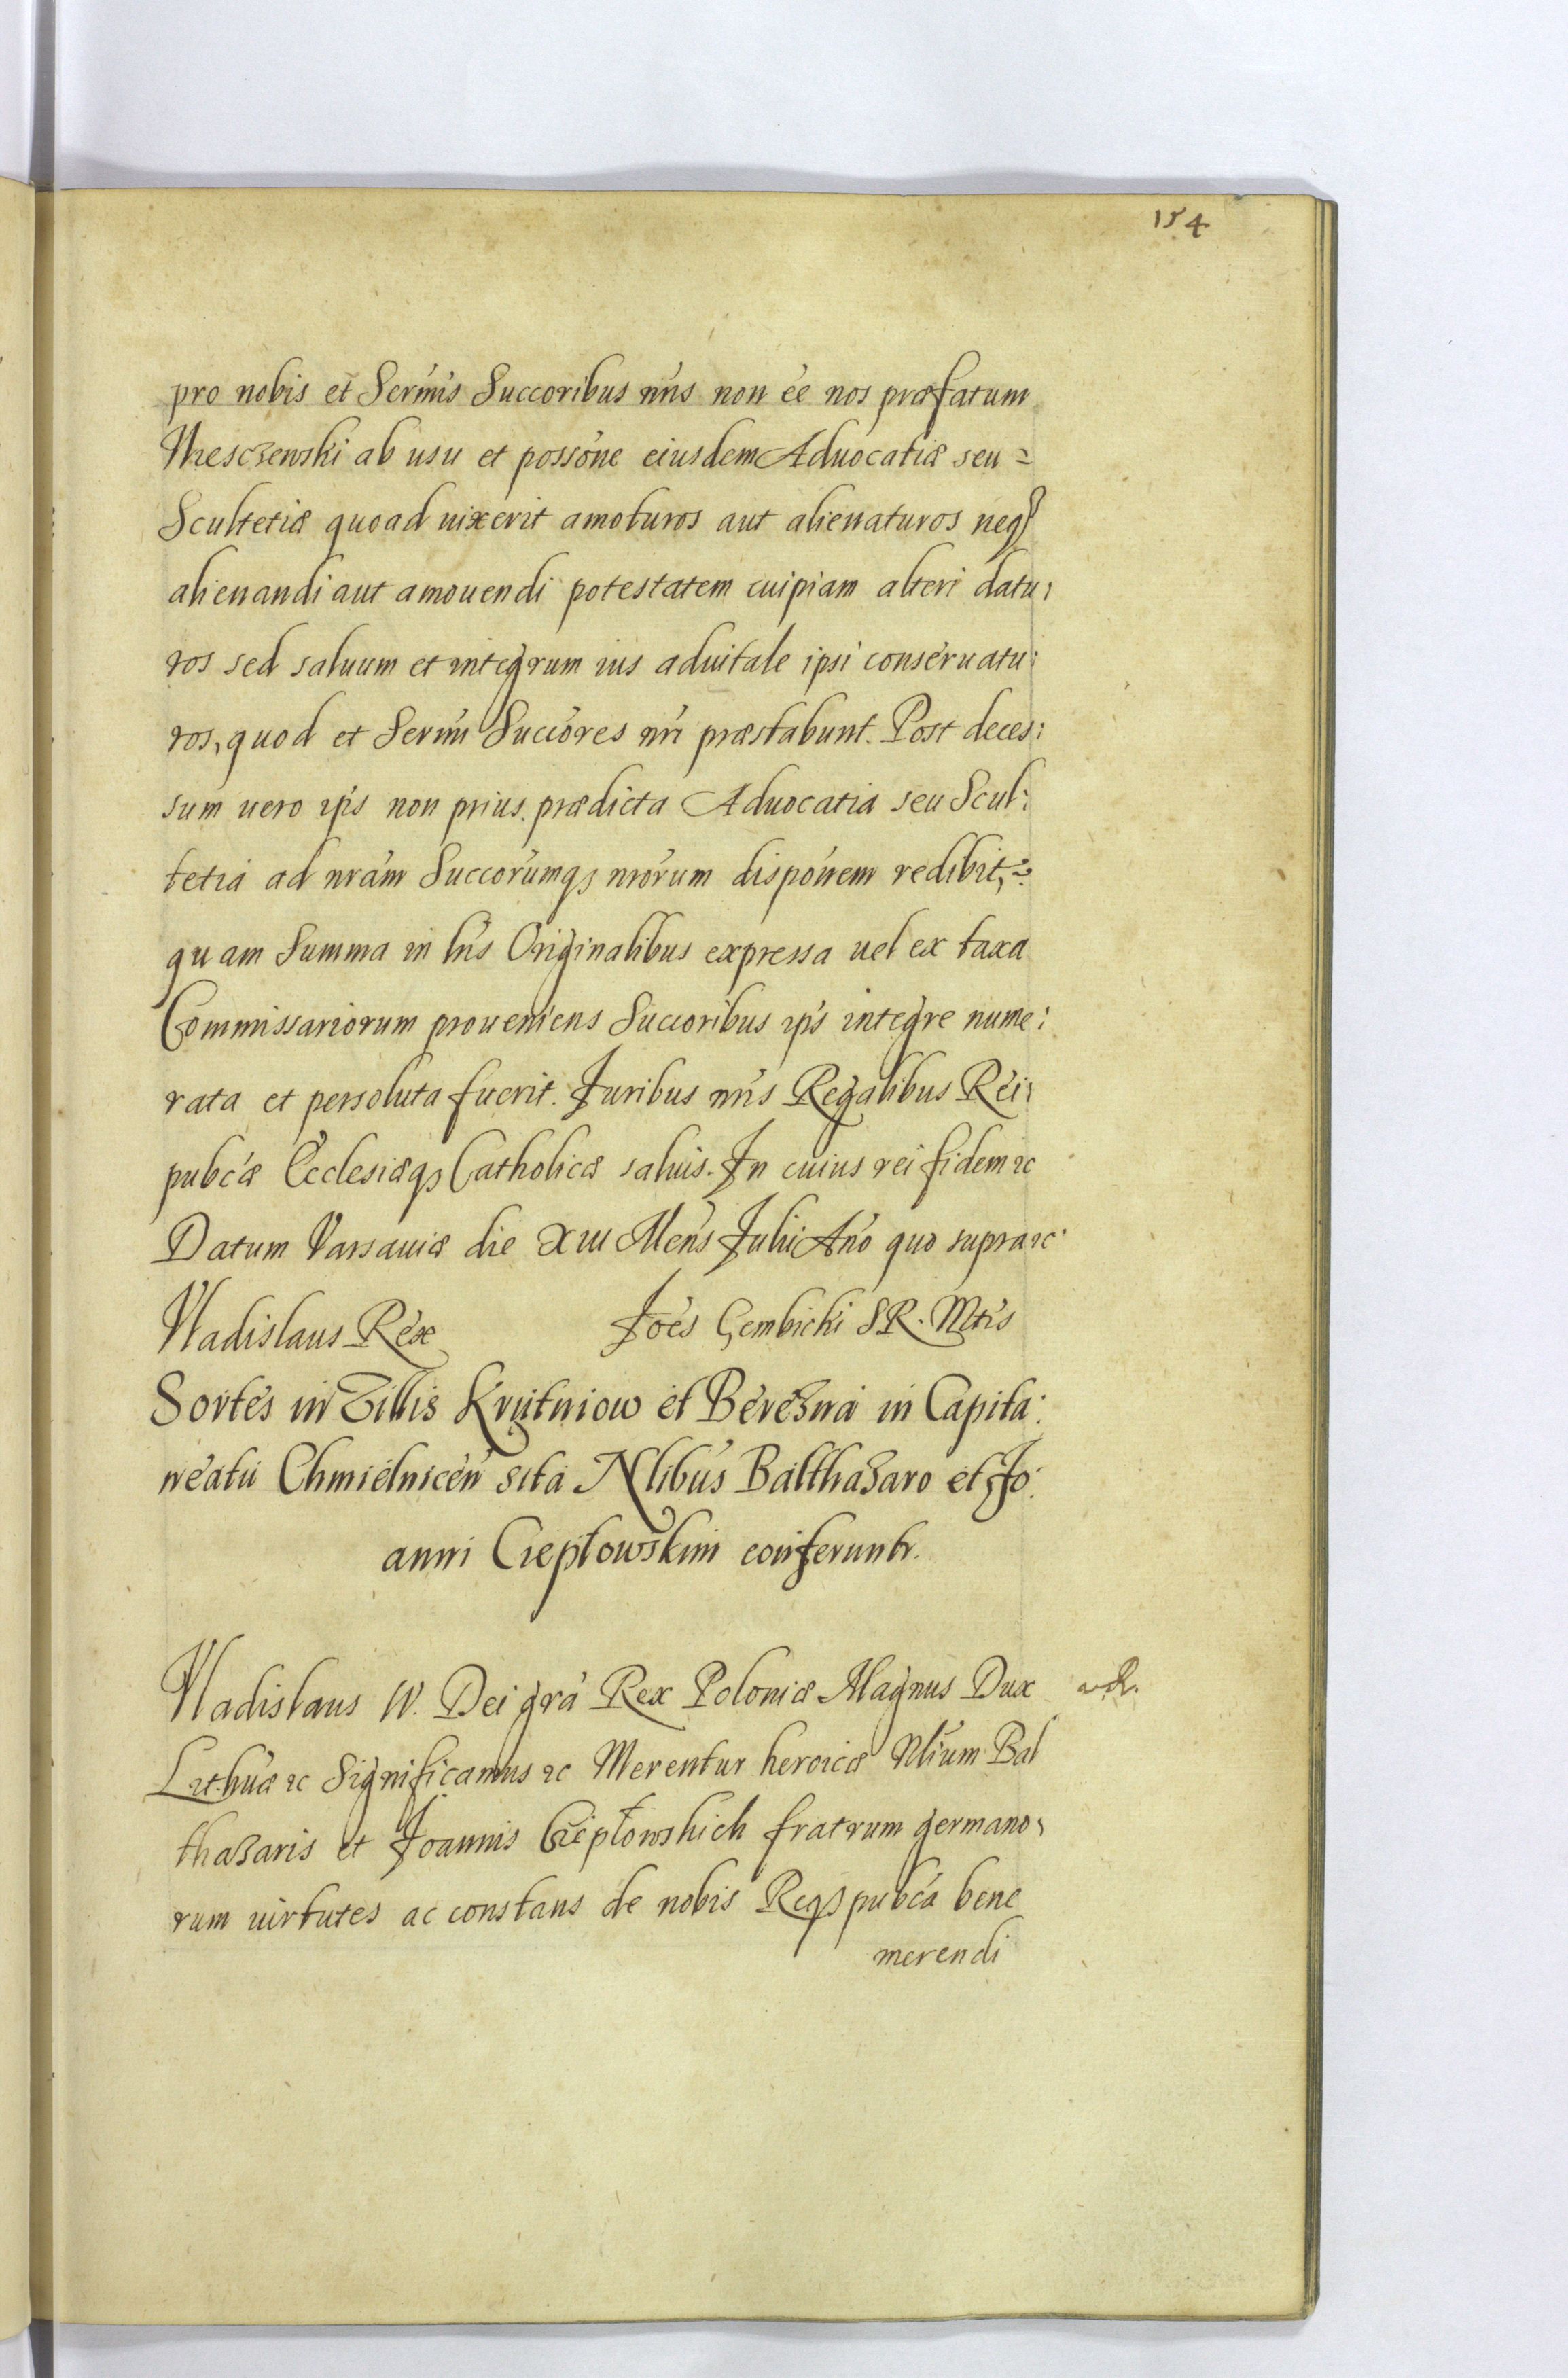 154
pro nobis et Sermis Succoribus nris non ee nos præfatum
Vresczewski ab usu et possone eiusdem Aduocatiæ seu =
Scultetiæ quoad uixerit amoturos aut alienaturos neqȝ
alienandi aut amouendi potestatem cuipiam alteri datu:
ros sed saluum et integrum ius aduitale ipsi conseruatu:
ros, quod et Sermi Succores nri præstabunt. Post deces:
sum uero ips non prius. prædicta Aduocatia seu Scul:
tetia ad nram Succorumqȝ nrorum disponem redibit,
quam Summa in lris Originalibus expressa uel ex taxa
Commissariorum proueniens Succoribus ips integre nume:
rata et persoluta fuerit. Juribus nris Regalibus Rei:
pubcæ Ecclesiæqȝ Catholicæ saluis. In cuius rei fidem ꝛc
Datum Varsauiæ die XIII Mens Julii Ano quo supra ꝛc
Vladislaus Rex Joes Gembicki S R. Mtis
Sortes in Villis Krutniow et Berezna in Capita:
neatu Chmielnicen sita Nlibus Balthazaro et Jo:
anni Ciepłowskim conferuntr.
Vladislaus IV. Dei gra Rex Poloniæ Magnus Dux
Lithuæ ꝛc Significamus ꝛc Merentur heroicæ Nlium Bal
thazaris et Joannis Ciepłowskich fratrum germano:
rum uirtutes ac constans de nobis Reqȝ pubca bene
merendi